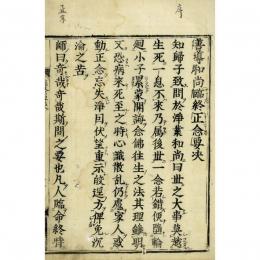 序
善導和尚臨終正念要決
知歸子致問於淨業和尚曰世之大事莫越
生死一息不來乃屬後世一念若錯便墮輪
廻小子累蒙開誨念佛往生之法其理雖明
又恐病來死至之時心識散亂仍慮家人惑
動正念忘失淨因伏望重示逕方俾免沉
淪之苦
師曰奇哉奇哉斯問之要也凡人臨命終時